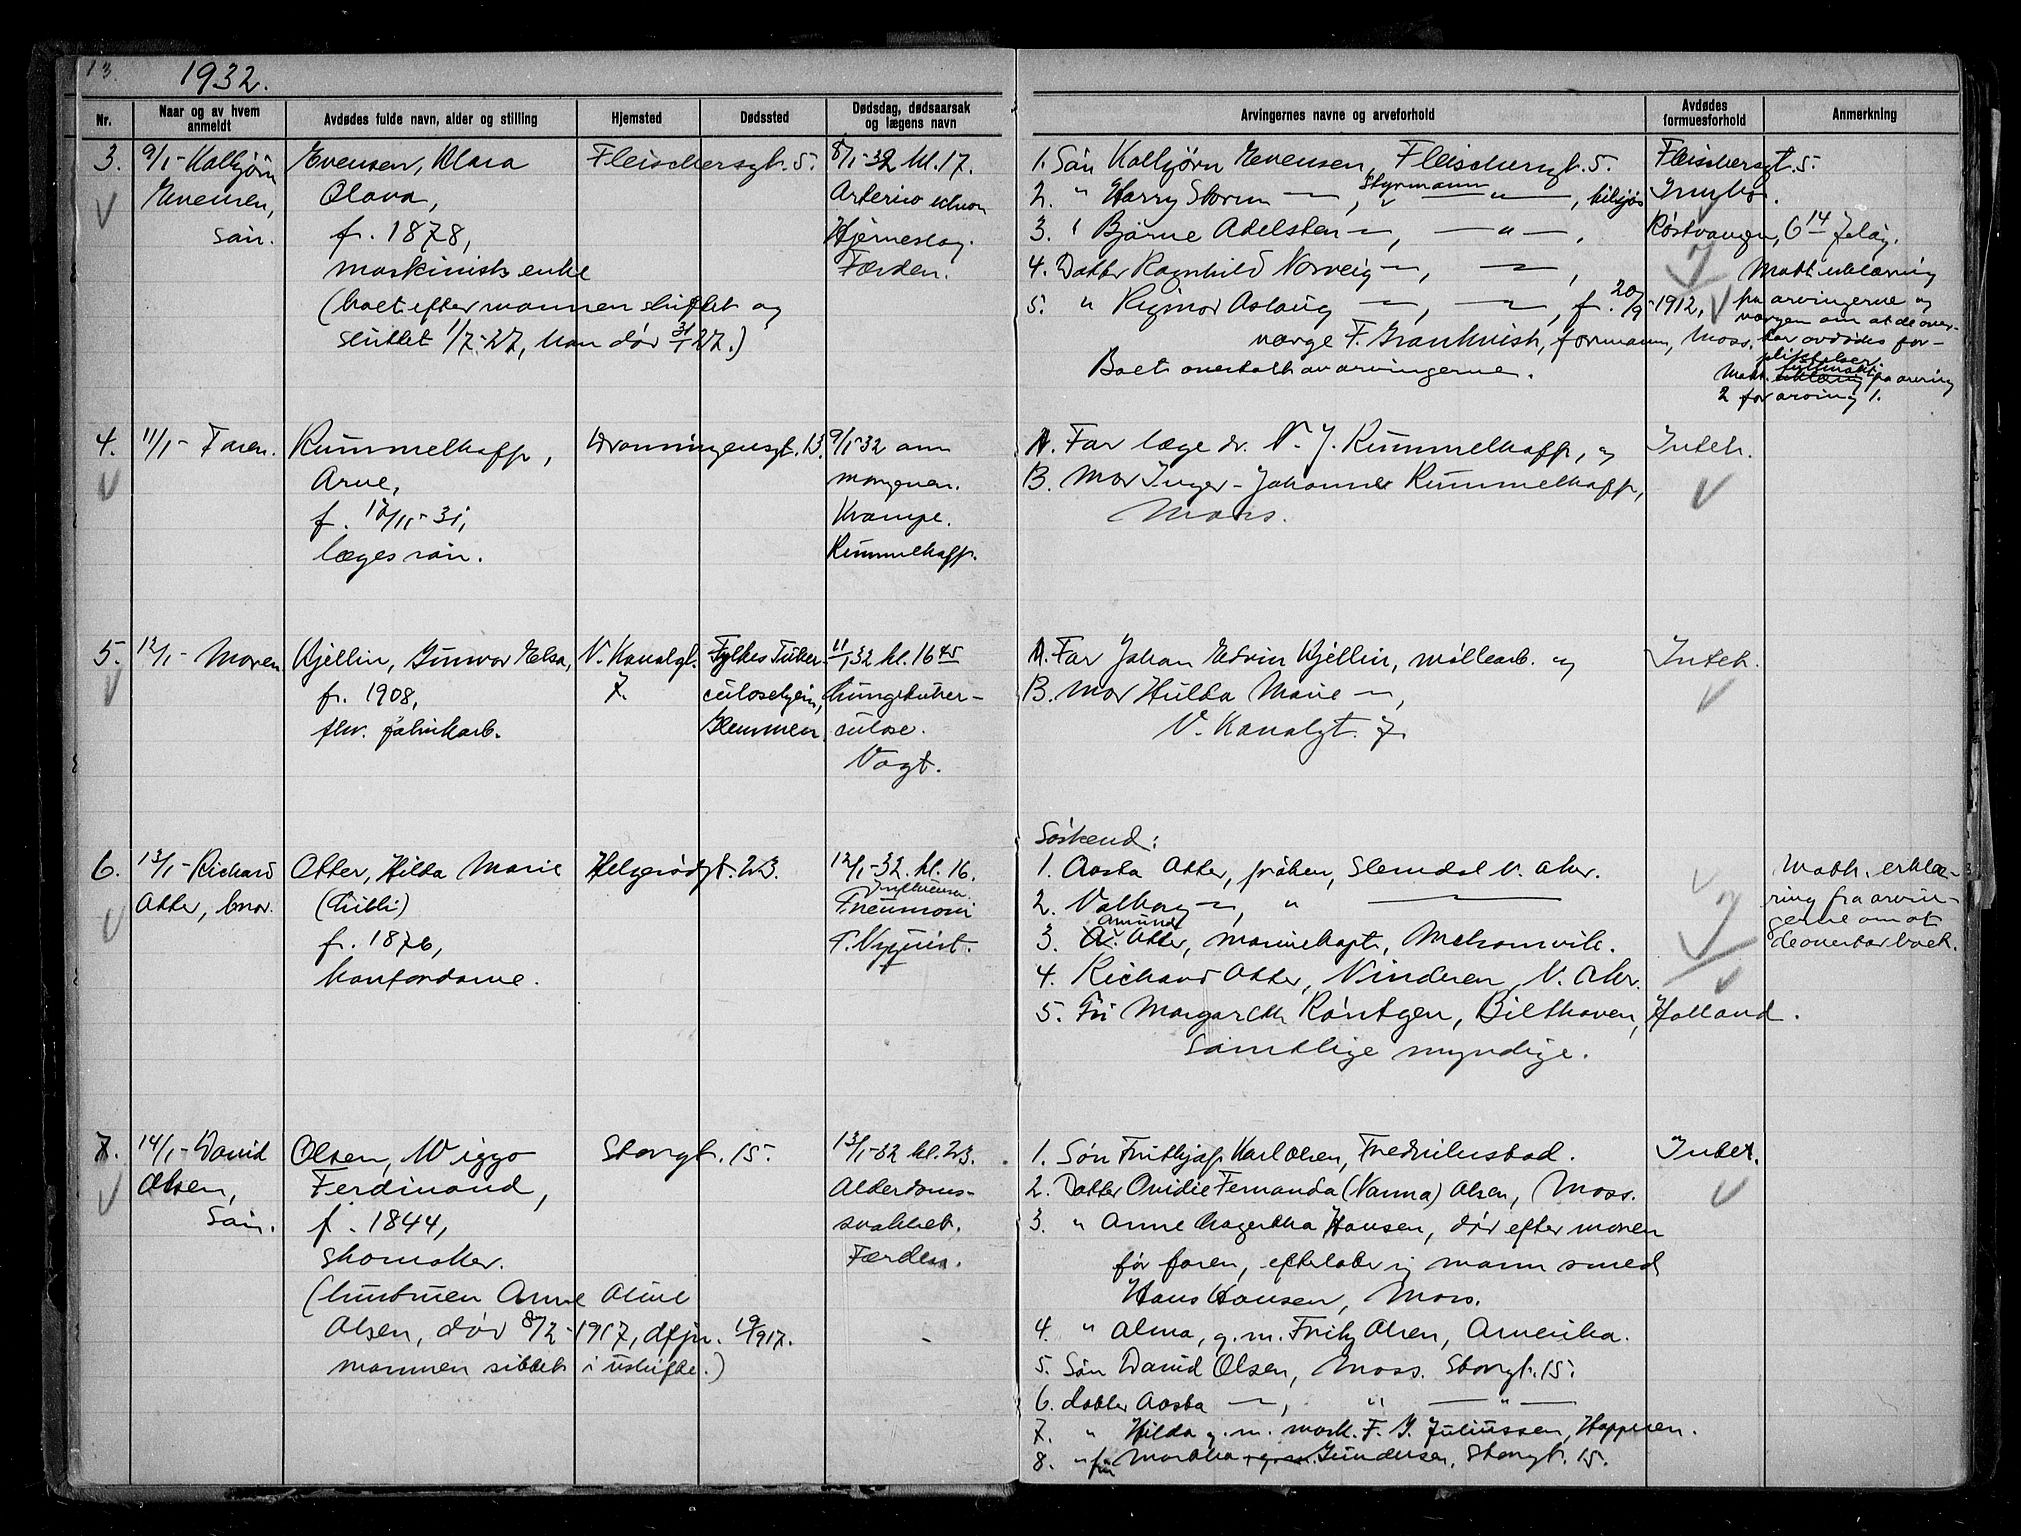 13.
1932.
Nr.
Naar og av hvem anmeldt
Avdødes fulde navn, alder og stilling
Hjemsted
Dødssted
Dødsdag, dødsaarsak og lægens navn
Arvingernes navne og arveforhold
Avdødes formuesforhold
Anmerkning
3.
9/1- Kolbjørn
Evensen,
søn.
Evensen, Klara
Olava,
f. 1878,
maskinists enke
(boet efter mannen skiftet og
sluttet 1/7-27, han død 31/1 27.)
Fleischersgt. 5.
8/1-32 kl. 17.
Hjerneslag.
Færden.
1. Søn Kolbjørn Evensen, Fleischersgt. 5.
2. " Harry Storm — , Styrmann — " —, tilsjøs
3. " Bjarne Adelsten —, — " — .
4. Datter Ragnhild Norveig —, — ,
5. " Rigmor Aslaug —, —, f. 20/9-1912,
verge F. Grankvist, formann, Moss.
Boet overtatt av arvingerne.
Fleischersgt. 5.
Innbo.
Røstvangen, 6 14
Mott. erklæring
fra arvingerne og
vergen om at de over-
tar avdødes for-
pliktelser.
Mott. erklæring fullmakt fra arving
2 for arving 1.
4.
11/1- Faren.
Rummelhoff,
Arne,
f. 17/11-31,
læges søn.
Dronningensgt. 13.
9/1-32 om
morgenen.
Krampe.
Rummelhoff.
A. Far læge dr. N. J. Rummelhoff, og
B. Mor Inger-Johanne Rummelhoff,
Moss.
Intet.
5.
12/1- Moren
Kjellin, Gunvor Elsa,
f. 1908,
fhv. fabrikarb.
V. Kanalgt.
7.
Fylkes Tuber-
culosehjem,
Glemmen.
11/1 32 kl. 16 45
Lungetuber-
culose.
Vogt.
A. Far Johan Edvin Kjellin, møllearb. og
B. Mor Hulda Marie —,
V. Kanalgt. 7.
Intet.
6.
13/1- Richard
Otter, bror.
Otter, Hilda Marie
(Lilli)
f. 1876,
kontordame.
Helgerødgt. 23.
12/1-32. kl. 16.
Influensa
Pneumoni
T. Nyquist.
Søskend:
1. Aasta Otter, frøken, Slemdal V. Aker.
2. Valborg —, " —
3. A. Amund Otter, marinekapt., Melsomvik.
4. Richard Otter, Vinderen, V. Aker.
5. Fru Margareth Røntgen, Bilthoven, Holland.
Samtlige myndige.
Mott. erklæ-
ring fra arvin-
gerne om at
de overtar boet.
7.
14/1- David
Olsen,
Søn.
Olsen, Wiggo
Ferdinand,
f. 1844,
skomaker.
(hustruen Anne Oline
Olsen, død 8/2-1917, dfjn. 19/1917.
mannen sittet i uskifte.)
Storgt. 15.
13/1-32 kl. 23.
Alderdoms-
svakhet.
Færden.
1. Søn Frithjof Karl Olsen, Fredrikstad.
2. Datter Ovidie Fernanda (Nanna) Olsen, Moss.
3. " Anne Magertha Hansen, død efter moren
før faren, efterlater sig mann smed
Hans Hansen, Moss.
4. " Alma, g. m. Fritz Olsen, Amerika.
5. Søn David Olsen, Moss. Storgt. 15.
6. datter Aasta —, " — " —
7. " Hilda g. m. mask. F. J. Juliussen, Høppern.
8. " fru Martha g. m. Gundersen, Storgt. 15.
Intet.